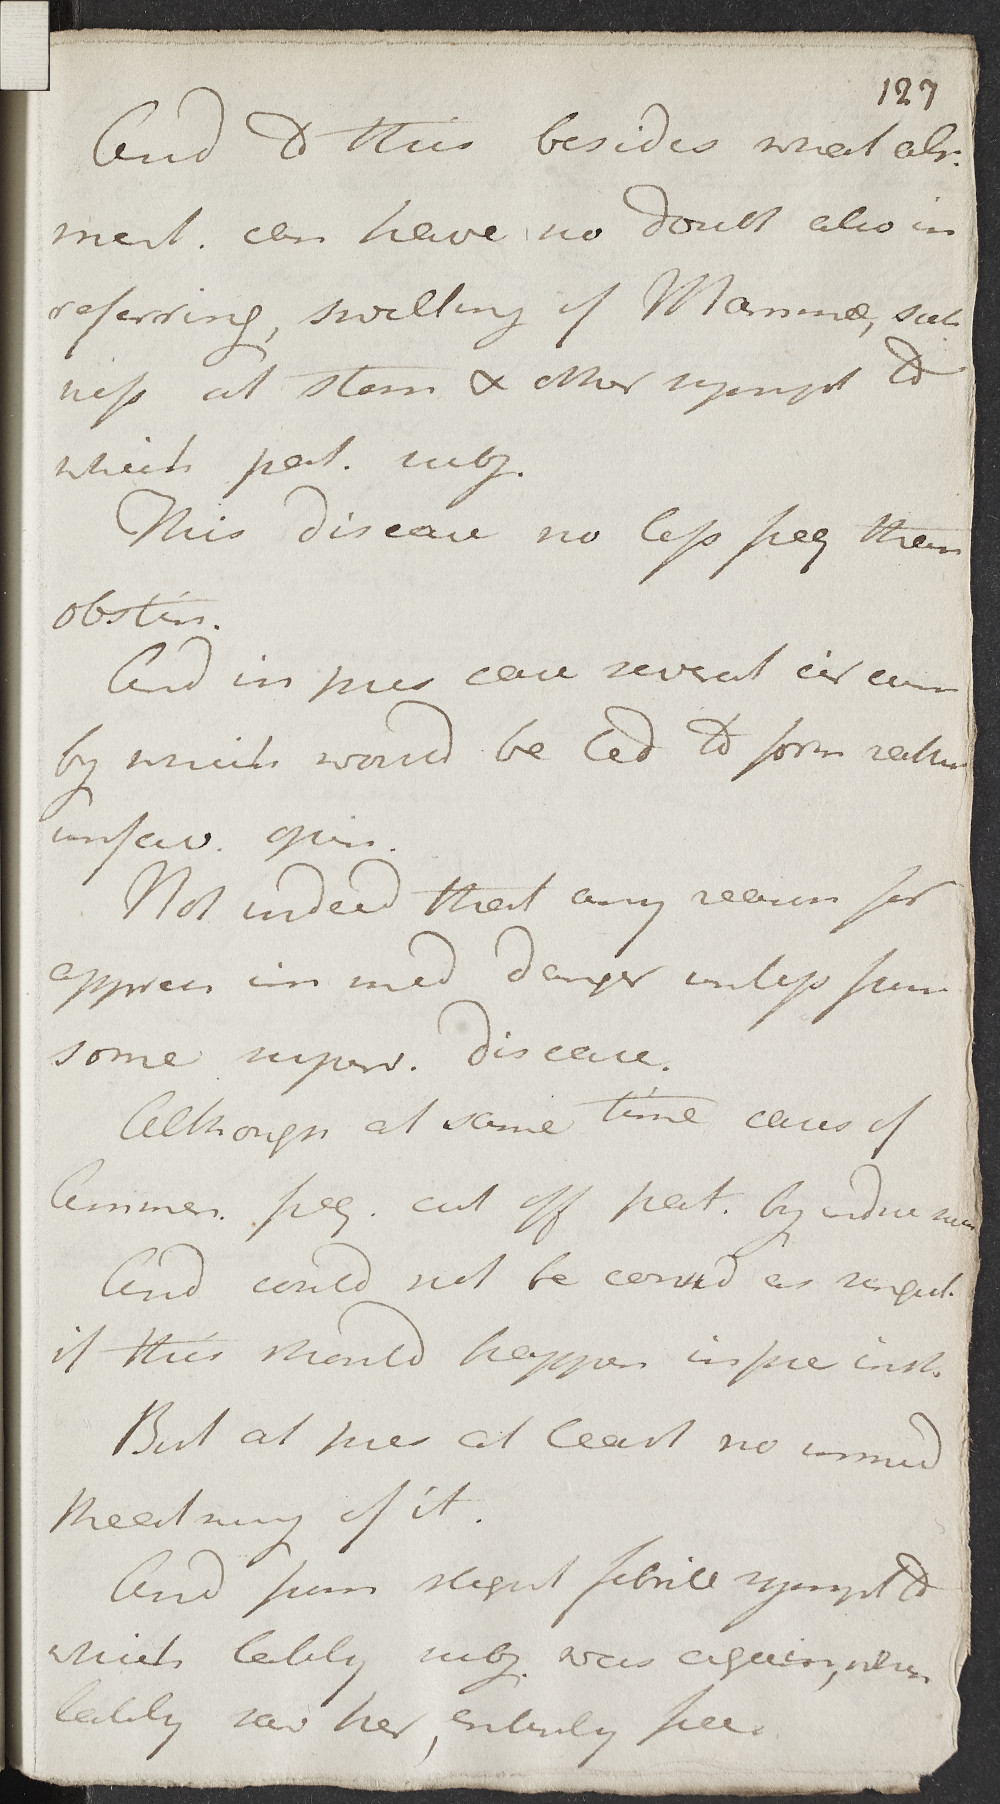 127
And to this besides what alr.
ment. can have no doubt also in
referring, swelling of Mammæ, sick
ness at stom & other sympt to
which pat. subj.
This disease no less freq than
obstin.
And in pres case several circum
by which would be led to form rather
unfav. opin.
Not indeed that any reason for
appreh immed danger unless from
some superv. disease.
Although at same time cases of
Ammen. freq. cut off pat. by
And could not be consid as singul.
if this should happen in pre inst.
But at pres at least no immed
threatning of it.
And from slight febrile sympt to
which lately subj. was again, when
lately saw her, entirely free.